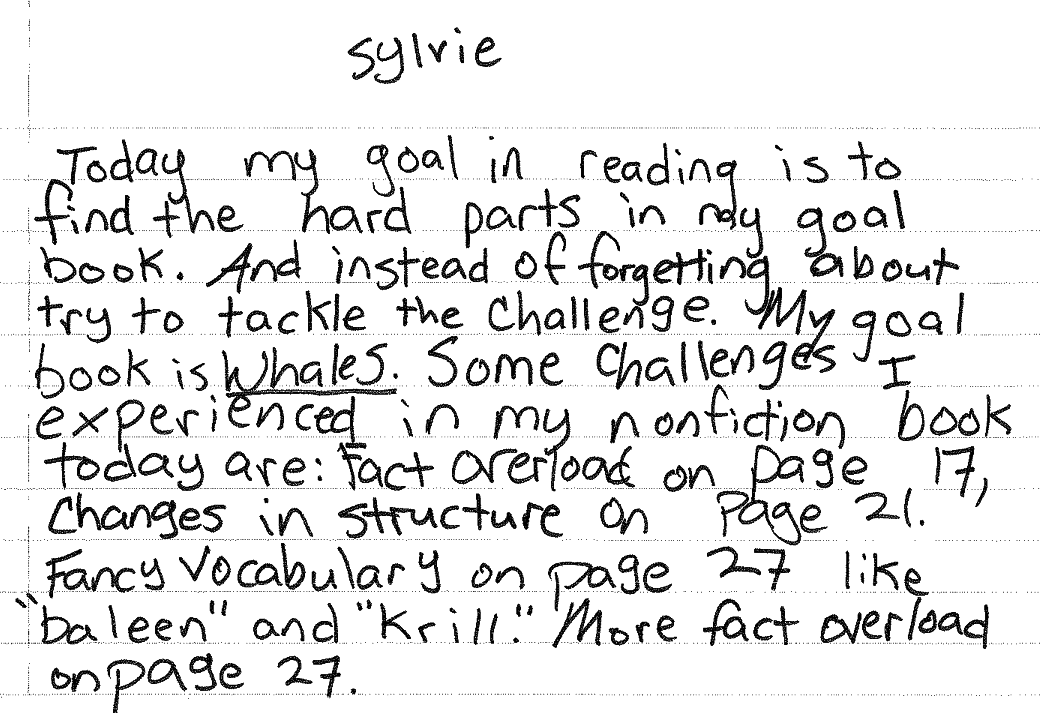 sylvie
Today my goal in reading is to
find the hard parts in my goal
book. And instead of forgetting about
try to tackle the challenge. My goal
book is Whales. Some challenges I
experienced in my nonfiction book
today are: Fact overload on page 17,
Changes in structure on Page 21.
Fancy Vocabulary on page 27 like
"baleen" and "Krill." More fact overload
on page 27.